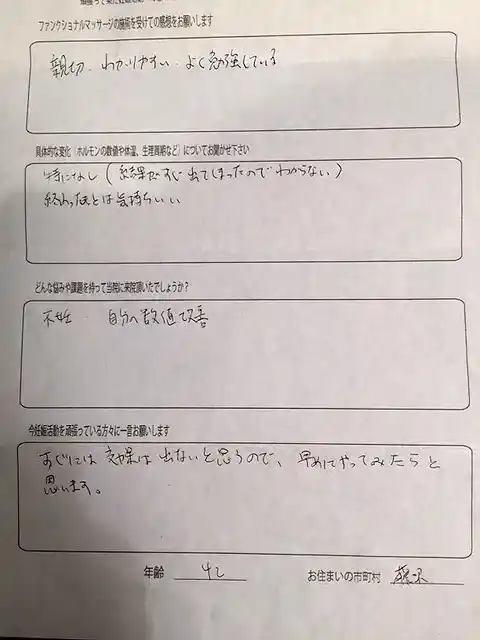 ファンクショナルマッサージの施術を受けての感想をお願いします
親切、わかりやすい、よく勉強している
具体的な変化(ホルモンの数値や体温、生理周期など)についてお聞かせ下さい
特になし(結果がすぐ出てしまったのでわからない)
終わったあとは気持ちいい
どんな悩みや課題を持って当院に来院頂いたでしょうか?
不妊 自分の数値改善
今妊娠活動を頑張っている方々に一言お願いします
すぐには効果は出ないと思うので、早めにやってみたらと
思います。
年齢 42 お住まいの市町村 藤沢